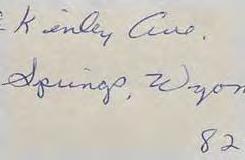 Kinley Ave.
Springs, Wyom
82